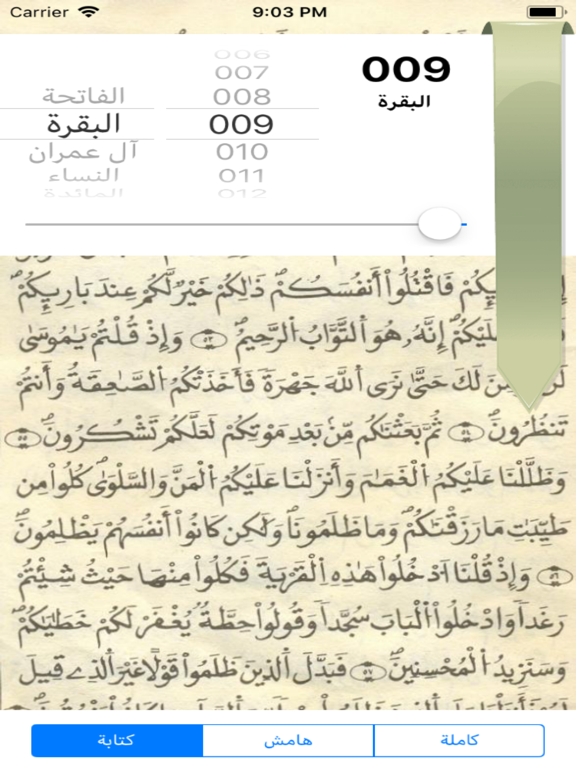 Carrier 9:03 PM
006
007
الفاتحة 008
البقرة 009
آل عمران 010
النساء 011
المائدة 012
009
البقرة
فَاقْتُلُوٓاْ أَنفُسَكُمْ ذَٰلِكُمْ خَيْرٌ لَّكُمْ عِندَ بَارِيِٕكُمْ
عَلَيْكُمُۥٓ إِنَّهُۥ هُوَ اَلتَّوَّابُ اُلرَّحِيمُ وَإِذْ قُلْتُمْ يَٰمُوسَىٰ
لَكَ حَتَّىٰ نَرَى اَللَّهَ جَهْرَةً فَأَخَذَتْكُمُ اُلصَّٰعِقَةُ وَأَنتُمْ
تَنظُرُونَ ثُمَّ بَعَثْنَٰكُم مِّنۢ بَعْدِ مَوْتِكُمْ لَعَلَّكُمْ تَشْكُرُونَ
وَظَلَّلْنَا عَلَيْكُمُ اُلْغَمَٰمَ وَأَنزَلْنَا عَلَيْكُمُ اُلْمَنَّ وَالسَّلْوَىٰ كُلُواْ مِن
طَيِّبَٰتِ مَا رَزَقْنَٰكُمْ وَمَا ظَلَمُونَا وَلَٰكِن كَانُوٓاْ أَنفُسَهُمْ يَظْلِمُونَ
وَإِذْ قُلْنَا اَدْخُلُواْ هَٰذِهِ اِلْقَرْيَةَ فَكُلُواْ مِنْهَا حَيْثُ شِئْتُمْ
رَغَداً وَادْخُلُواْ اُلْبَابَ سُجَّداً وَقُولُواْ حِطَّةٌ يُغْفَرْ لَكُمْ خَطَٰيَٰكُمْ
وَسَنَزِيدُ اُلْمُحْسِنِينَ فَبَدَّلَ اَلَّذِينَ ظَلَمُواْ قَوْلاً غَيْرَ اَلَّذِي قِيلَ
كتابة هامش كاملة